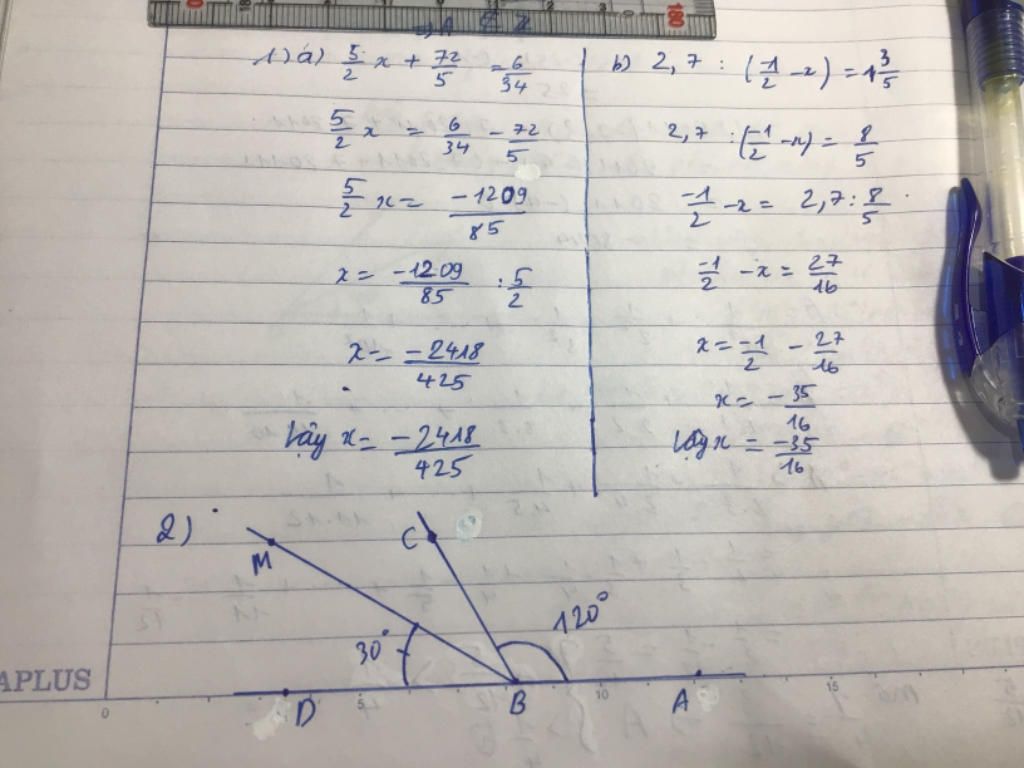 1) a) 5/2 x + 72/5 = 6/34
5/2 x = 6/34 - 72/5
5/2 x = -1209/85
x = -1209/85 : 5/2
x = -2418/425
Vậy x = -2418/425
b) 2,7 : (-1/2 - x) = 1 3/5
2,7 : (-1/2 - x) = 8/5
-1/2 - x = 2,7 : 8/5
-1/2 - x = 27/16
x = -1/2 - 27/16
x = -35/16
Vậy x = -35/16
2)
M C
30° 120°
D B A
APLUS
0 5 10 15
180